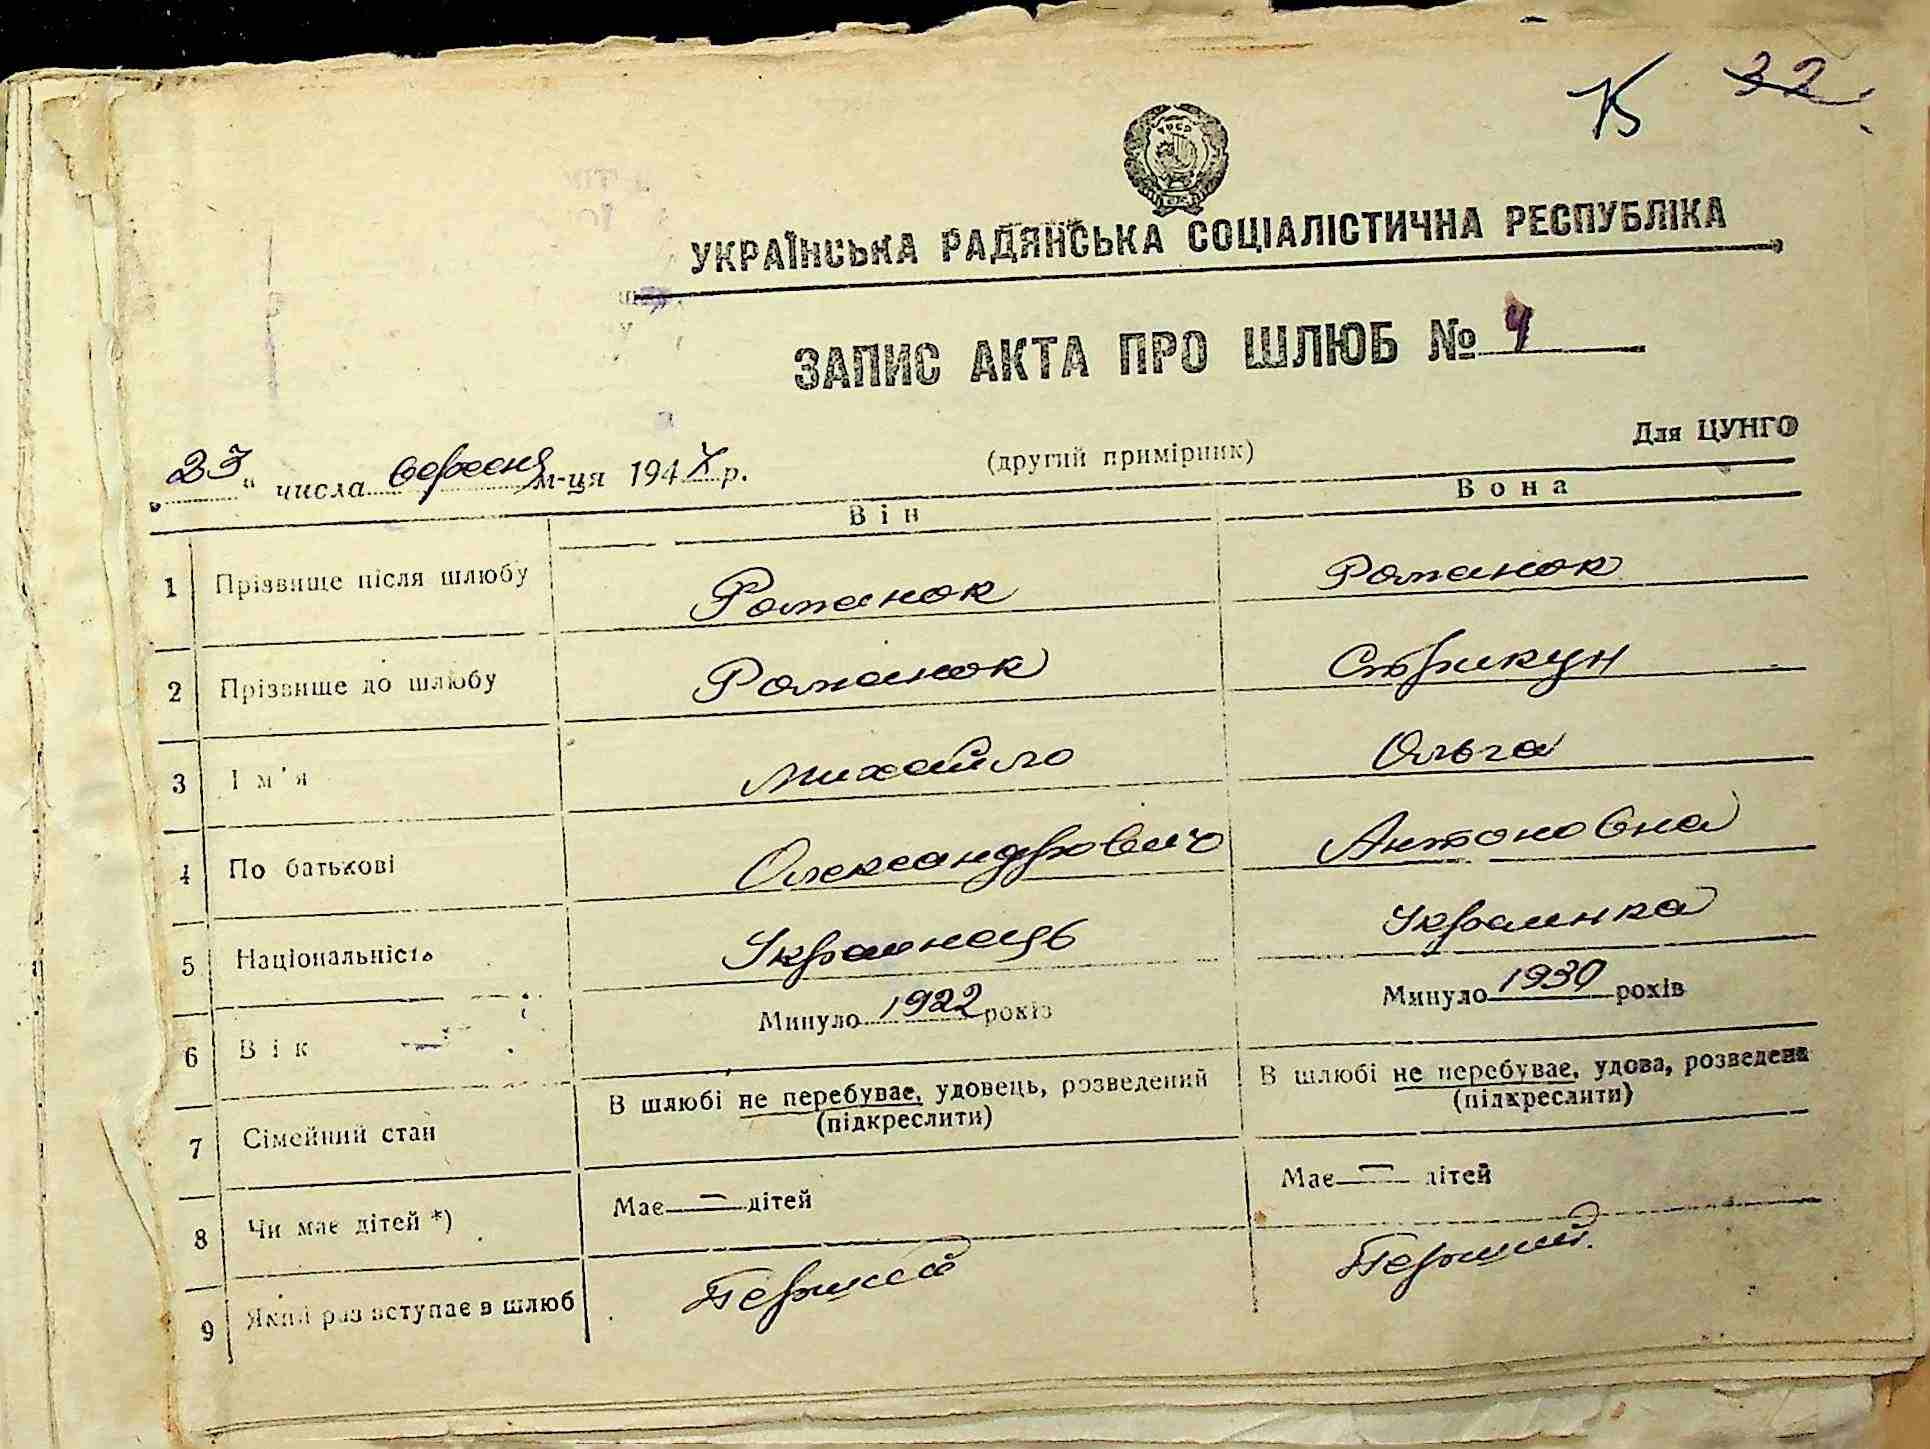 К 32
УКРАЇНСЬКА РАДЯНСЬКА СОЦІАЛІСТИЧНА РЕСПУБЛІКА
ЗАПИС АКТА ПРО ШЛЮБ № 4
Для ЦУНГО
(другий примірник)
„23" числа вересня м-ця 194 р.
Він Вона
1 Прізвище після шлюбу Романюк Романюк
2 Прізвище до шлюбу Романюк Стрикун
3 Ім'я Михайло Ольга
4 По батькові Олександрович Антоновна
5 Національність Українець Українка
6 Вік Минуло 1922 років Минуло 1930 років
7 Сімейний стан В шлюбі не перебуває, удовець, розведений (підкреслити) В шлюбі не перебуває, удова, розведена (підкреслити)
8 Чи має дітей *) Має — дітей Має — дітей
9 Який раз вступає в шлюб Перший Перший